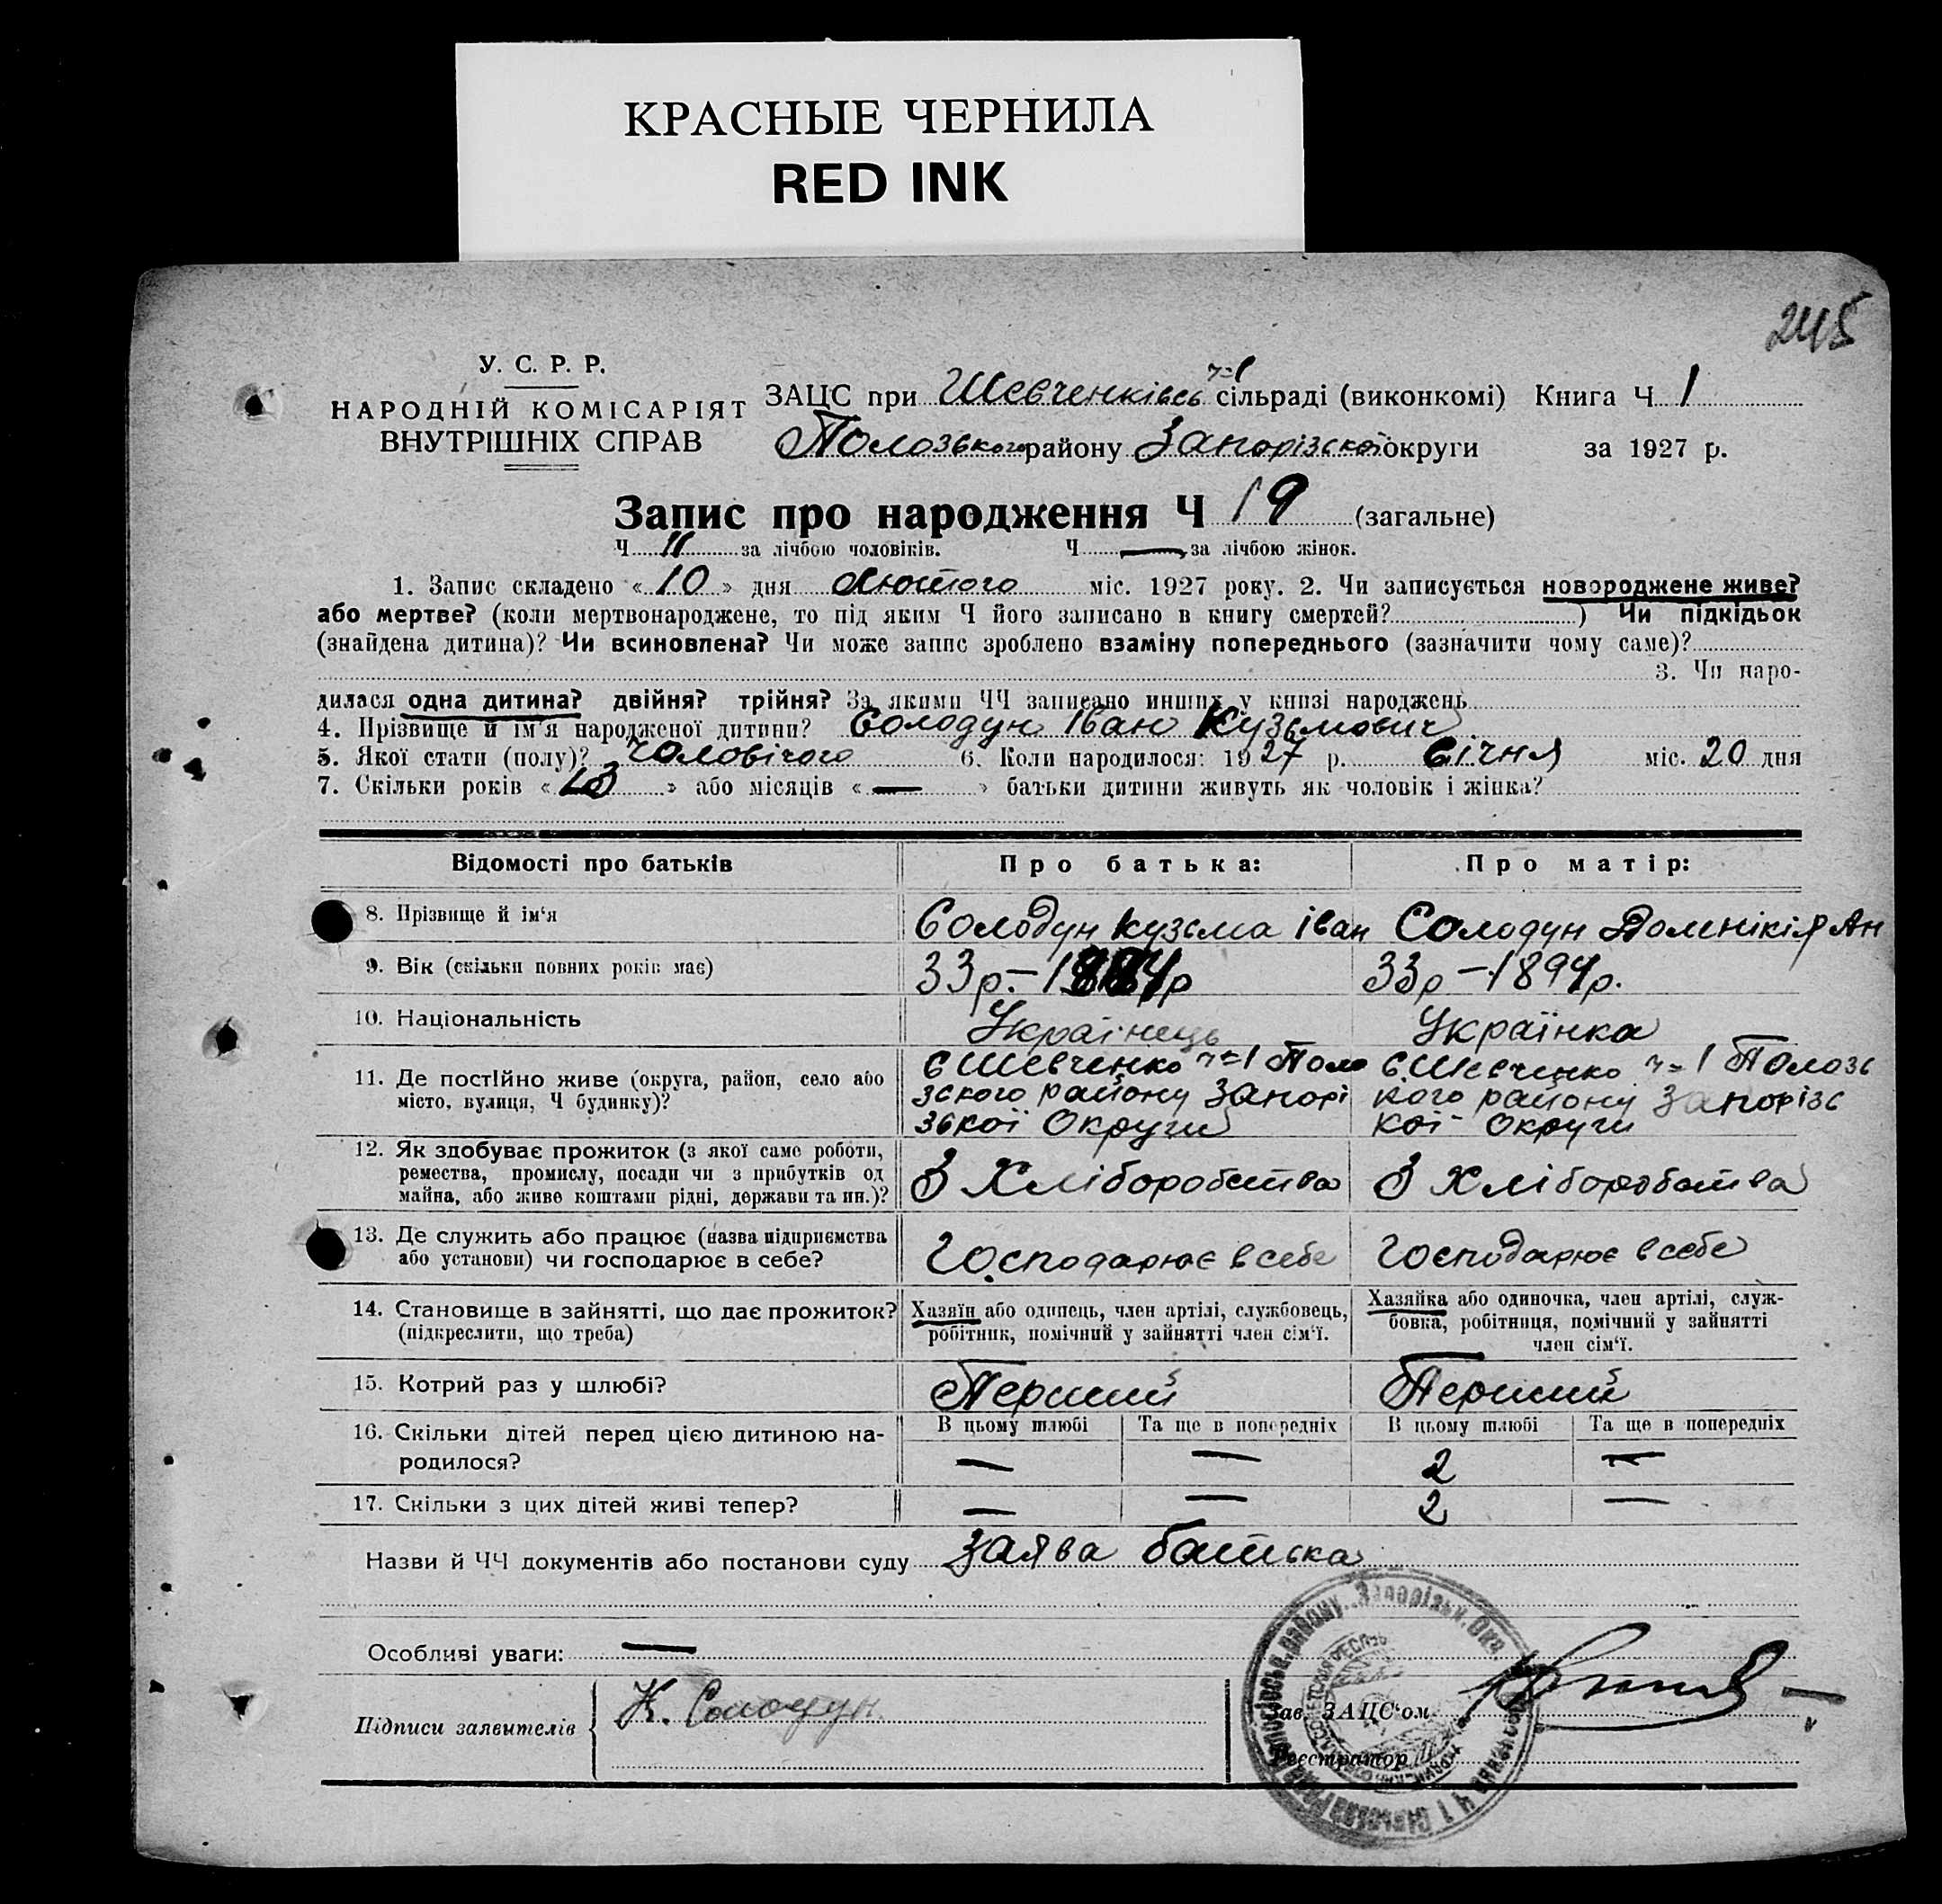 КРАСНЫЕ ЧЕРНИЛА
RED INK
245
У. С. Р. Р.
НАРОДНІЙ КОМІСАРІЯТ
ВНУТРІШНІХ СПРАВ
ЗАЦС при Шевченківсь ч=1 сільраді (виконкомі) Книга Ч 1
Полозького району Запорізської округи за 1927 р.
Запис про народження Ч 19 (загальне)
Ч 11 за лічбою чоловіків. Ч — за лічбою жінок.
1. Запис складено « 10 » дня Лютого міс. 1927 року. 2. Чи записується новороджене живе?
або мертве? (коли мертвонароджене, то під яким Ч його записано в книгу смертей? ) Чи підкідьок
(знайдена дитина)? Чи всиновлена? Чи може запис зроблено взаміну попереднього (зазначити чому саме)?
3. Чи наро-
дилася одна дитина? двійня? трійня? За якими ЧЧ записано инших у книзі народжень
4. Прізвище й ім'я народженої дитини? Солодун Іван Кузьмович
5. Якої стати (полу)? Чоловічого 6. Коли народилося: 1927 р. Січня міс. 20 дня
7. Скільки років « 13 » або місяців « — » батьки дитини живуть як чоловік і жінка?
Відомості про батьків Про батька: Про матір:
8. Прізвище й ім'я Солодун Кузьма Іван Солодун Домнікія Ан
9. Вік (скільки повних років має) 33р.– 33р –1894р.
10. Національність Українець Українка
11. Де постійно живе (округа, район, село або місто, вулиця, Ч будинку)?
с Шевченко ч=1 Поло
зского району Запорі
зької Округи
с Шевченко ч=1 Полозь
кого району Запорізь
кої Округи
12. Як здобуває прожиток (з якої саме роботи,
ремества, промислу, посади чи з прибутків од
майна, або живе коштами рідні, держави та ин.)?
З Хліборобства З Хліборобства
13. Де служить або працює (назва підприємства
або установи) чи господарює в себе?
Господарює в себе Господарює в себе
14. Становище в зайнятті, що дає прожиток?
(підкреслити, що треба)
Хазяїн або одинець, член артілі, службовець,
робітник, помічний у зайнятті член сім'ї.
Хазяйка або одиночка, член артілі, служ-
бовка, робітниця, помічний у зайнятті
член сім'ї.
15. Котрий раз у шлюбі? Перший Перший
В цьому шлюбі Та ще в попередніх В цьому шлюбі Та ще в попередніх
16. Скільки дітей перед цією дитиною на-
родилося? — — 2 —
17. Скільки з цих дітей живі тепер? — — 2 —
Назви й ЧЧ документів або постанови суду Заява батька
Особливі уваги: —
Підписи заявителів К. Солодун
Зав. ЗАЦС'ом
Реєстратор